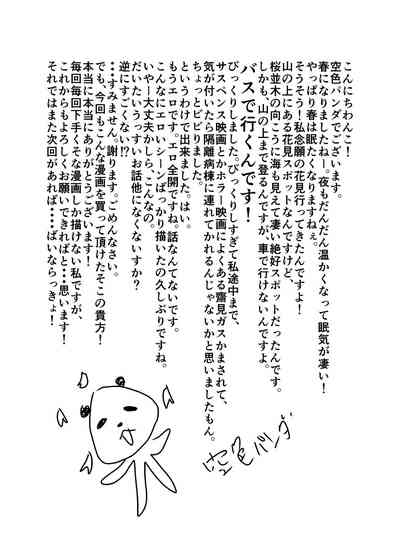 こんにちわんこ！
空色パンダでございます。
春になりましたねー。夜もだんだん温かくなって眠気が凄い！
やっぱり春は眠たくなりますねぇ。
そうそう！私念願の花見行ってきたんですよ！
山の上にある花見スポットなんですけど、
桜並木の向こうに海も見えて凄い絶好スポットだったんです。
しかも、山の上まで登るんですが、車で行けないんですよ。
バスで行くんです！
びっくりしました。びっくりしすぎて私途中まで、
サスペンス映画とかホラー映画によくある齋見ガスかまされて、
気が付いたら隔離病棟に連れてかれるんじゃないかと思いましたもん。
ちょっとビビりました。
というわけで出来ました。はい。
もうエロです。エロ全開ですね。話なんてないです。
こんなにエロいシーンばっかり描いたの久しぶりですね。
いやー大丈夫かしら、こんなの。
だいたいうっすいお話他になくないすか？
逆にすごくない!?
・・すみません。謝ります。ごめんなさい。
でも、今回もこんな漫画を買って頂けたそこの貴方！
本当に本当にありがとうございます！
毎回毎回下手くそな漫画しか描けない私ですが、
これからもよろしくお願いできればと・・思います！
それではまた次回があれば・・・ばいならっきょ！
空色パンダ